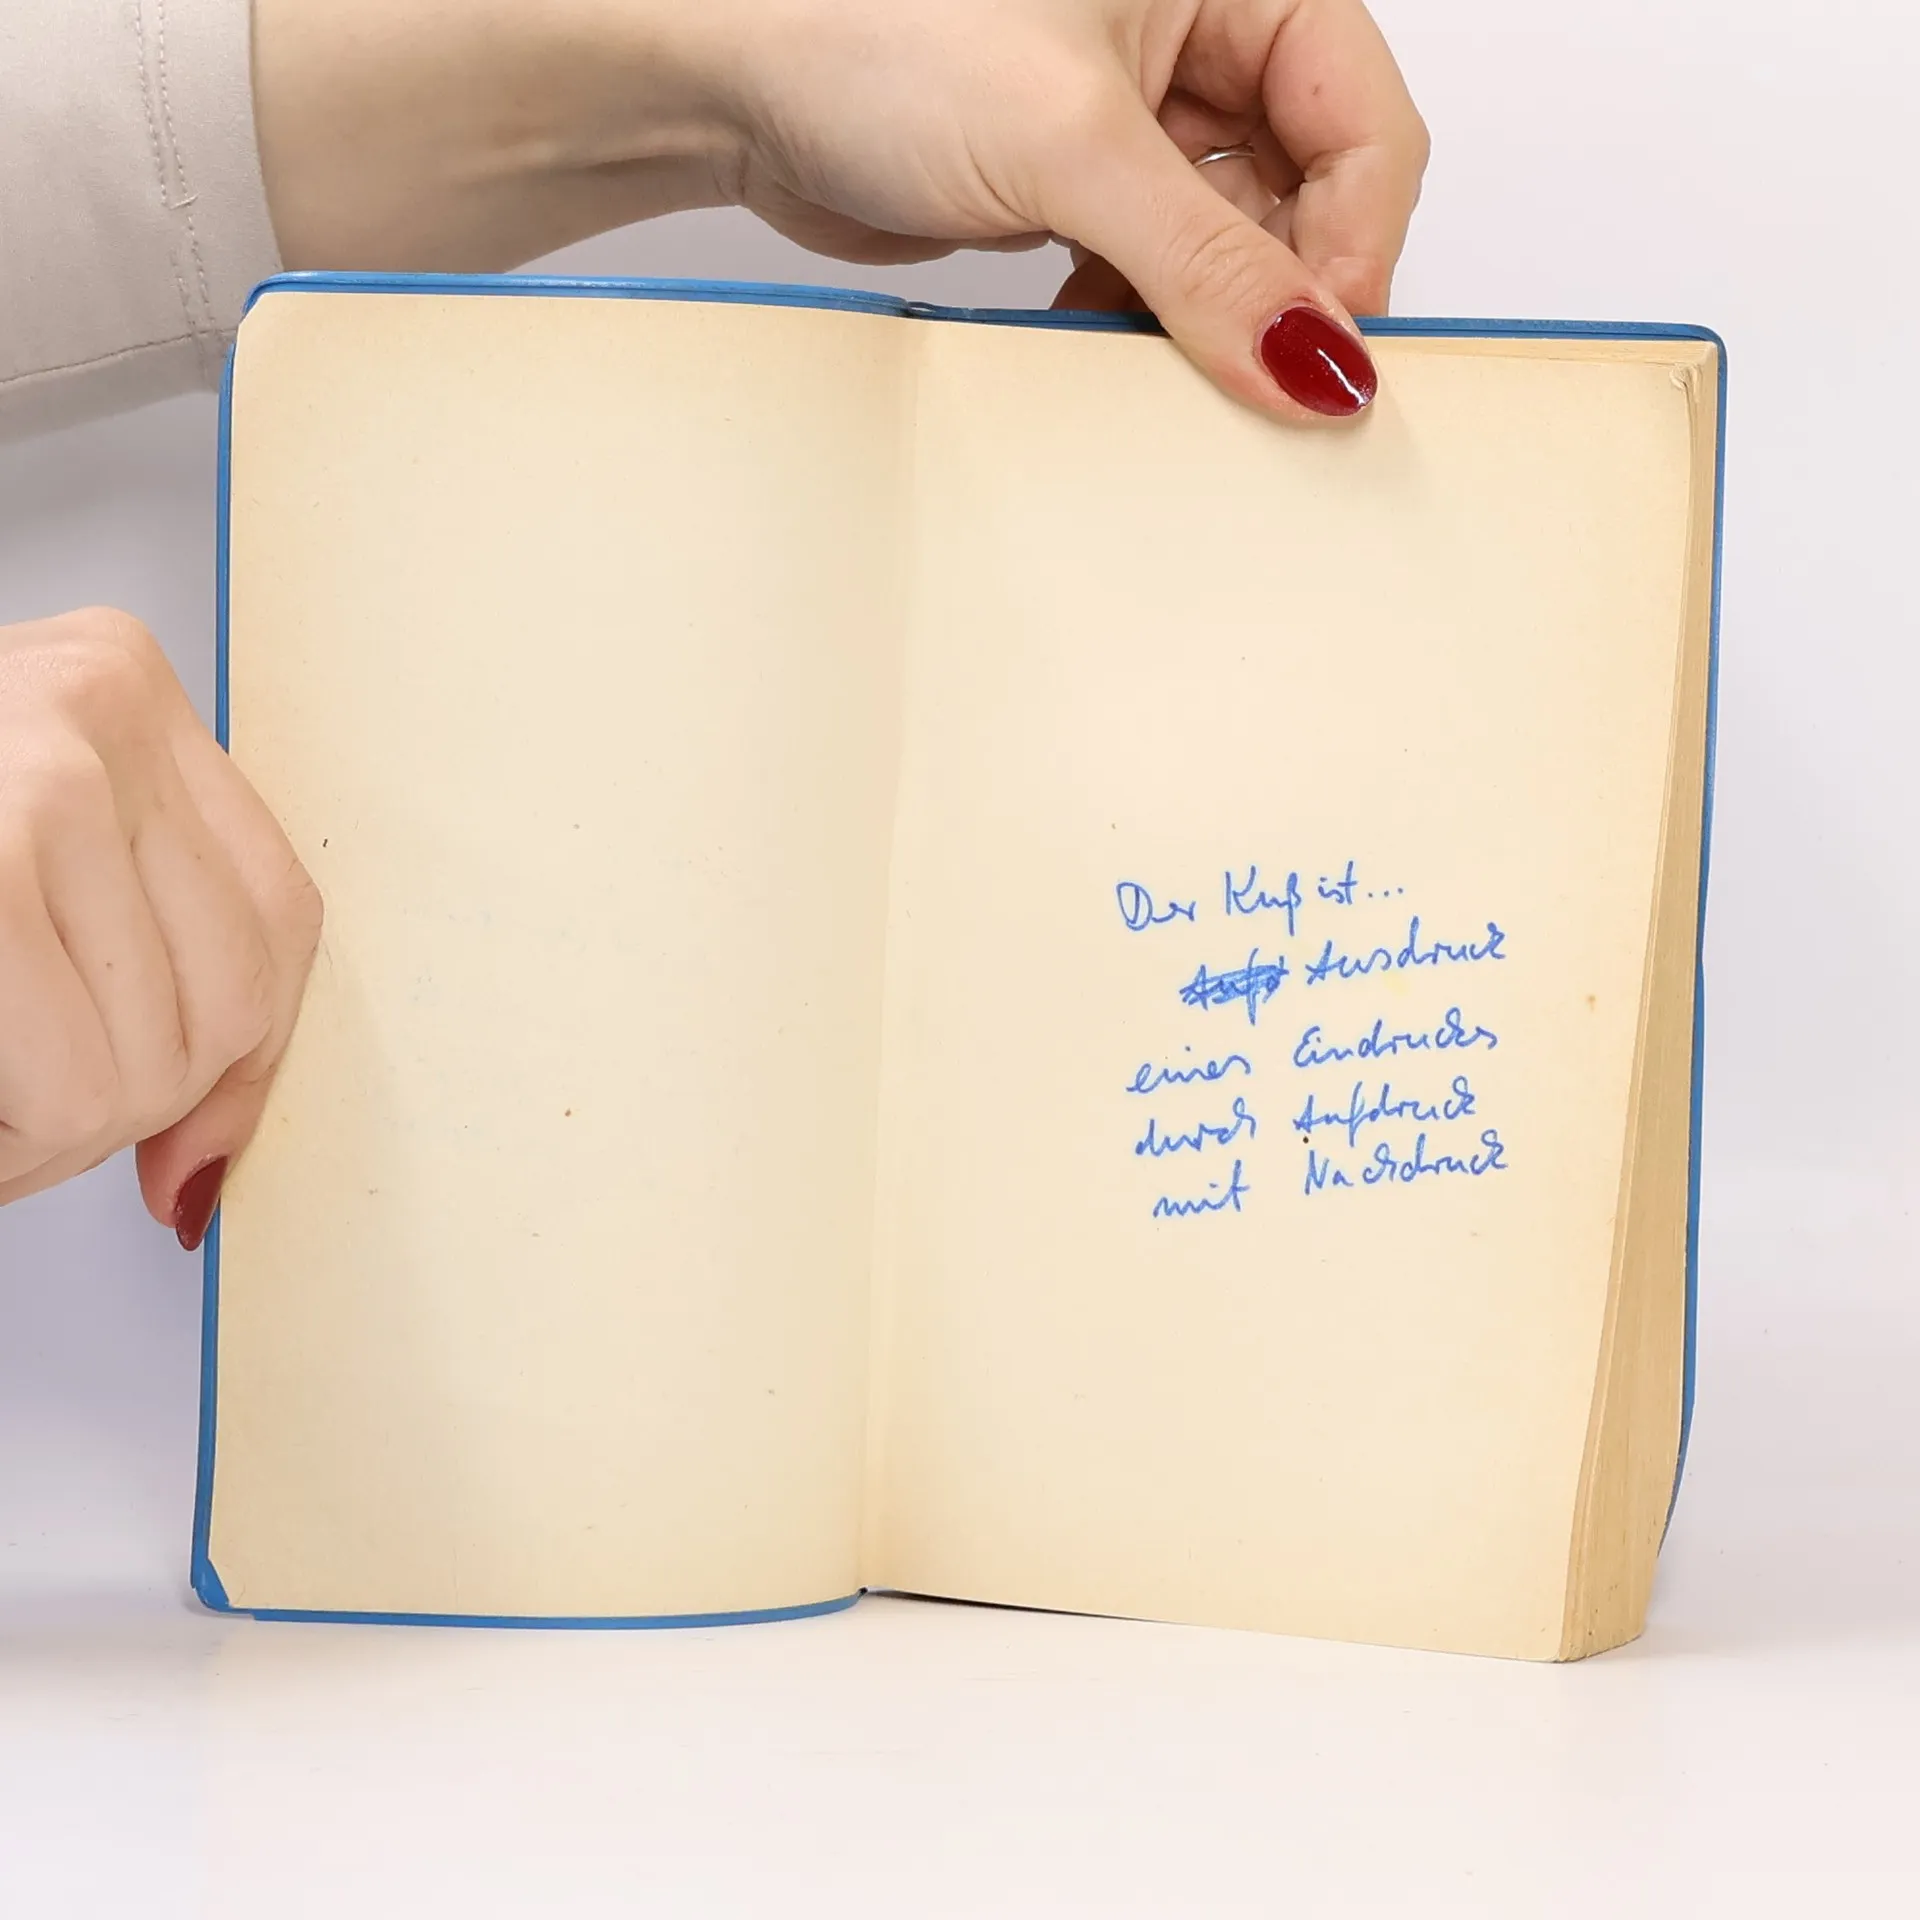 Der Kuß ist...
Ausdruck
eines Eindruckes
durch Aufdruck
mit Nachdruck